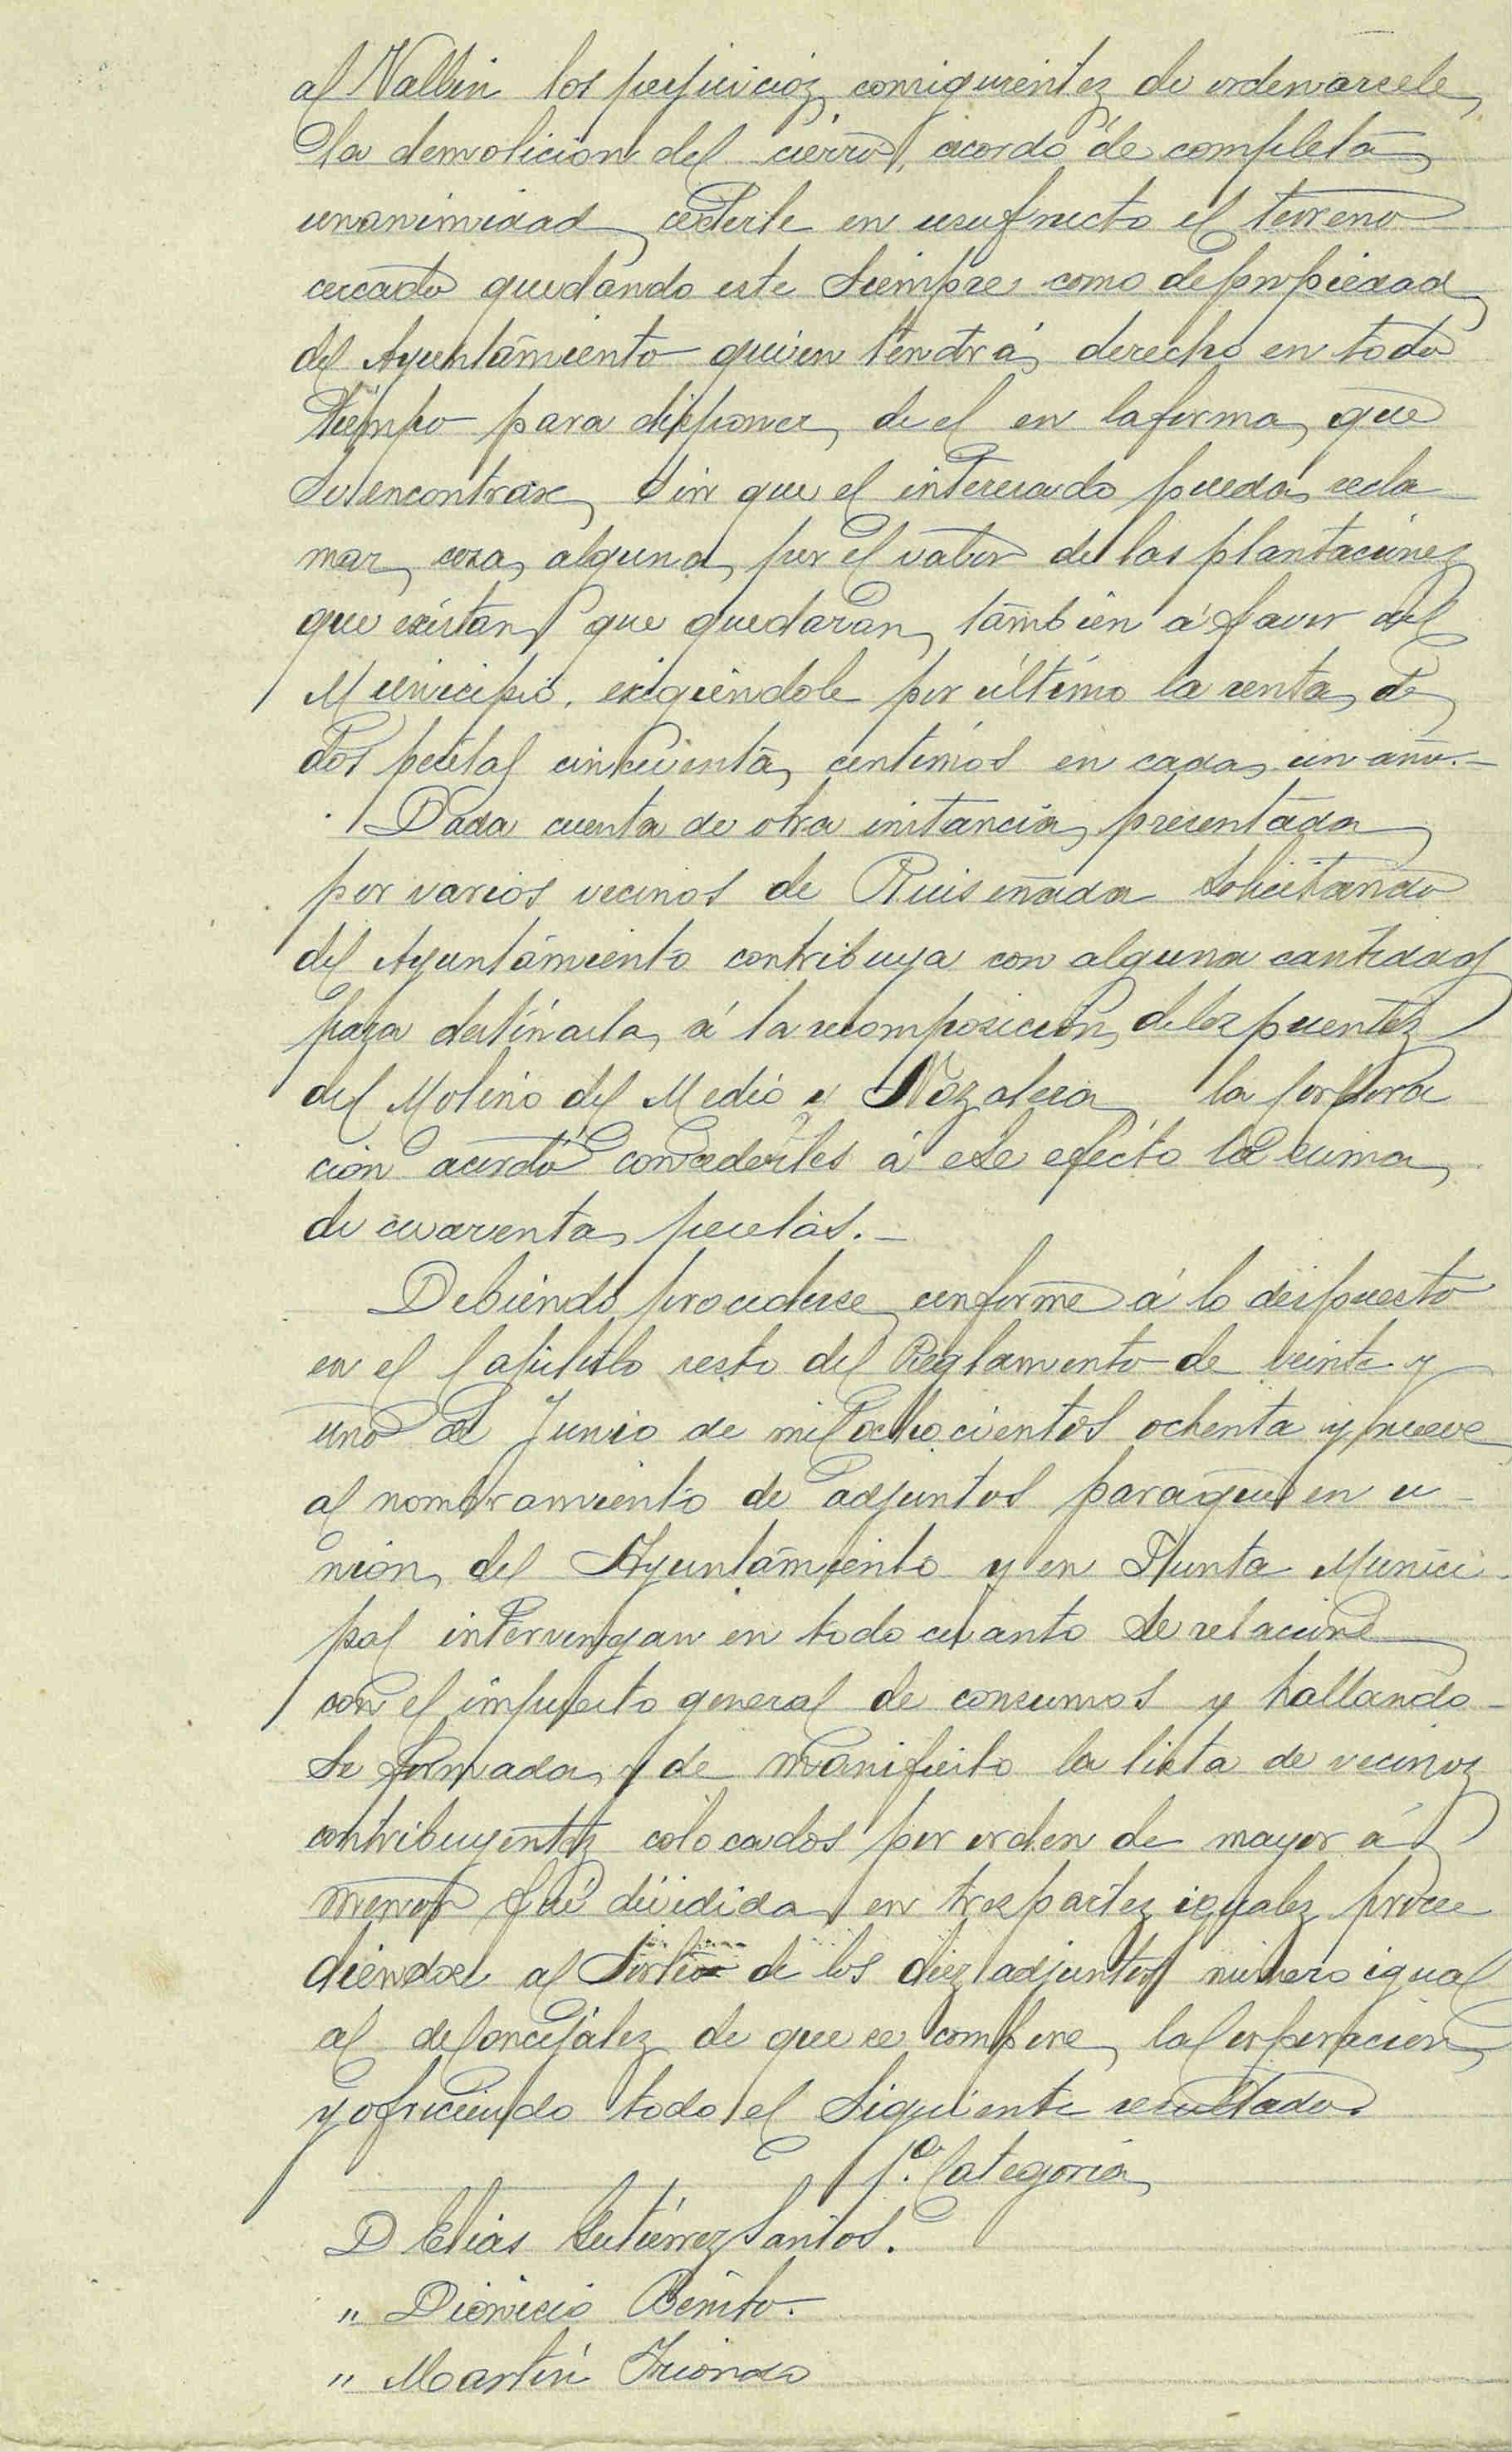 al Vallin los perjuicioz consiguientez de ordenarsele
la demolicion del cierro, acordó de completa
unanimidad cederle en usufructo el terreno
cercado quedando este siempre como de propiedad
del Ayuntamiento quien tendrá derecho en todo
tiempo para disponer de el en la forma que
lo encontrare sin que el interesado pueda recla
mar cosa alguna por el valor de las plantacionez
que existan que quedaran tambien á favor del
Municipio, exigiendole por último la renta de
dos pesetas cinkuenta centimos en cada un año.-
Dada cuenta de otra instancia presentada
por varios vecinos de Ruiseñada solicitando
del Ayuntamiento contribuya con alguna cantidad
para destinarla á la recomposicion de loz puentez
del Molino del Medio y Nozalera la Corpora
cion acordó concederles á ese efecto la suma
de cuarenta pesetas.-
Debiendo procederse conforme á lo dispuesto
en el Capitulo sesto del Reglamento de veinte y
uno de Junio de mil ochocientos ochenta y nueve
al nombramiento de adjuntos para que en u-
nion del Ayuntamiento y en Junta Munici-
pal intervengan en todo cuanto se relacione
con el impuesto general de consumos y hallando-
se formada y de manifiesto la lista de vecinoz
contribuyentez colocados por orden de mayor á
menor fué dividida en trez partez igualez proce
diendose al sorteo de los diez adjuntos número igual
al de Concejalez de que se compone la Corporacion
y ofreciendo todo el siguiente resultado.
1.ª Categoria
D Elias Gutierrez Santos.
" Dionicio Benito.
" Martin Iriondo